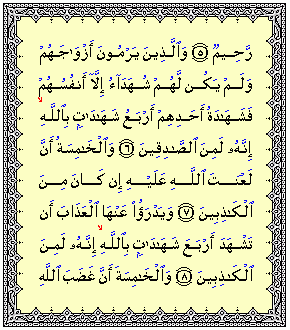 رَّحِيمٌ ۝٥ وَٱلَّذِينَ يَرْمُونَ أَزْوَٰجَهُمْ
وَلَمْ يَكُن لَّهُمْ شُهَدَآءُ إِلَّآ أَنفُسُهُمْ
فَشَهَٰدَةُ أَحَدِهِمْ أَرْبَعُ شَهَٰدَٰتٍۭ بِٱللَّهِ
إِنَّهُۥ لَمِنَ ٱلصَّٰدِقِينَ ۝٦ وَٱلْخَٰمِسَةُ أَنَّ
لَعْنَتَ ٱللَّهِ عَلَيْهِ إِن كَانَ مِنَ
ٱلْكَٰذِبِينَ ۝٧ وَيَدْرَؤُا۟ عَنْهَا ٱلْعَذَابَ أَن
تَشْهَدَ أَرْبَعَ شَهَٰدَٰتٍۭ بِٱللَّهِ إِنَّهُۥ لَمِنَ
ٱلْكَٰذِبِينَ ۝٨ وَٱلْخَٰمِسَةَ أَنَّ غَضَبَ ٱللَّهِ